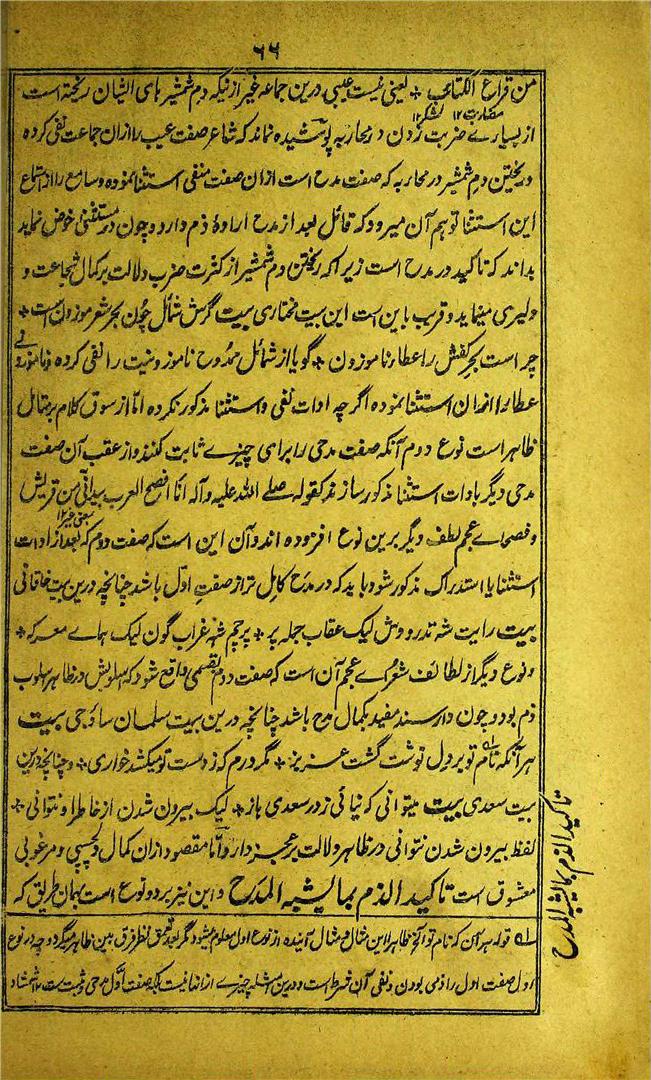 ۶۶
من قراع الکتائب ٭ یعنی نیست عیبی درین جماعه غیر ازینکه دم شمشیر های ایشان ریخته است
مضاربت ۱۲ لشکر ۱۲
از بسیارے ضربت زدن در محاربه پوشیده نماند که شاعر صفت عیب را ازان جماعت نفی کرده
و ریختن دم شمشیر در محاربه که صفت مدح است ازان صفت منفی استثنا نموده و سامع را از استماع
این استثنا توهم آن میرود که قائل بعد از مدح ارادهٔ ذم دارد و چون در مستثنی خوض نماید
بداند که تاکید در مدح است زیرا که ریختن دم شمشیر از کثرت ضرب دلالت بر کمال شجاعت و
دلیری مینماید و قریب باین است این بیت مختاری بیت گرش شمائل چون بحر شعر موزون است ٭
چراست بحر کفش را عطا ناموزون ٭ گویا از شمائل ممدوح ناموزونیت را نفی کرده و ناموزونی
عطا را ازان استثنا نموده اگرچه ادات نفی و استثنا مذکور نکرده اما از سوق کلام بر متامل
ظاهر است نوع دوم آنکه صفت مدحی را برای چیزے ثابت کنند و از عقب آن صفت
مدحی دیگر بادات استثنا مذکور سازند کقوله صلے الله علیه و آله انا افصح العرب بید انی من قریش
بمعنی غیر ۱۲
و فصحاے عجم لطف دیگر برین نوع افزوده اند و آن این است که صفت دوم که بعد از ادات
استثنا یا استدراک مذکور شود باید که در مدح کامل تر از صفت اول باشد چنانچه درین بیت خاقانی
بیت رایت شه تدرو وش لیک عقاب حمله بر ٭ پرچم شه غراب گون لیک هماے معرکه ٭
و نوع دیگر از لطائف شعراے عجم آن است که صفت دوم بقسمی واقع شود که اسلوبش در ظاهر اسلوب
ذم بود و چون دارسند مفید کمال مدح باشد چنانچه درین بیت سلمان ساؤجی بیت
هر آنکه نام تو بر دل نوشت گشت عزیز ٭ مگر درم که ز دست تو میکشد خواری ٭ و چنانچه درین
بیت سعدی بیت میتوانی که نیائی ز در سعدی باز ٭ لیک بیرون شدن از خاطر او نتوانی ٭
لفظ بیرون شدن نتوانی در ظاهر دلالت بر عجز دارد و اما مقصود ازان کمال دلچسپی و مرغوبی
معشوق است تاکید الذم بما یشبه المدح و این نیز بر دو نوع است بهمان طریق که
تاکید الذم بما یشبه المدح
۱؎ قوله هر آن که نام تو الخ ظاهرا این مثال و مثال آینده از نوع اول معلوم میشود مگر بعد تعمق نظر فرق بین ظاهر میگردد چه در نوع
اول صفت اول را ذمی بودن و نفی آن شرط است و درین امثله چیزے ازانها نیست بلکه صفت اول مدحی و مثبت است ۱۲ شمشاد